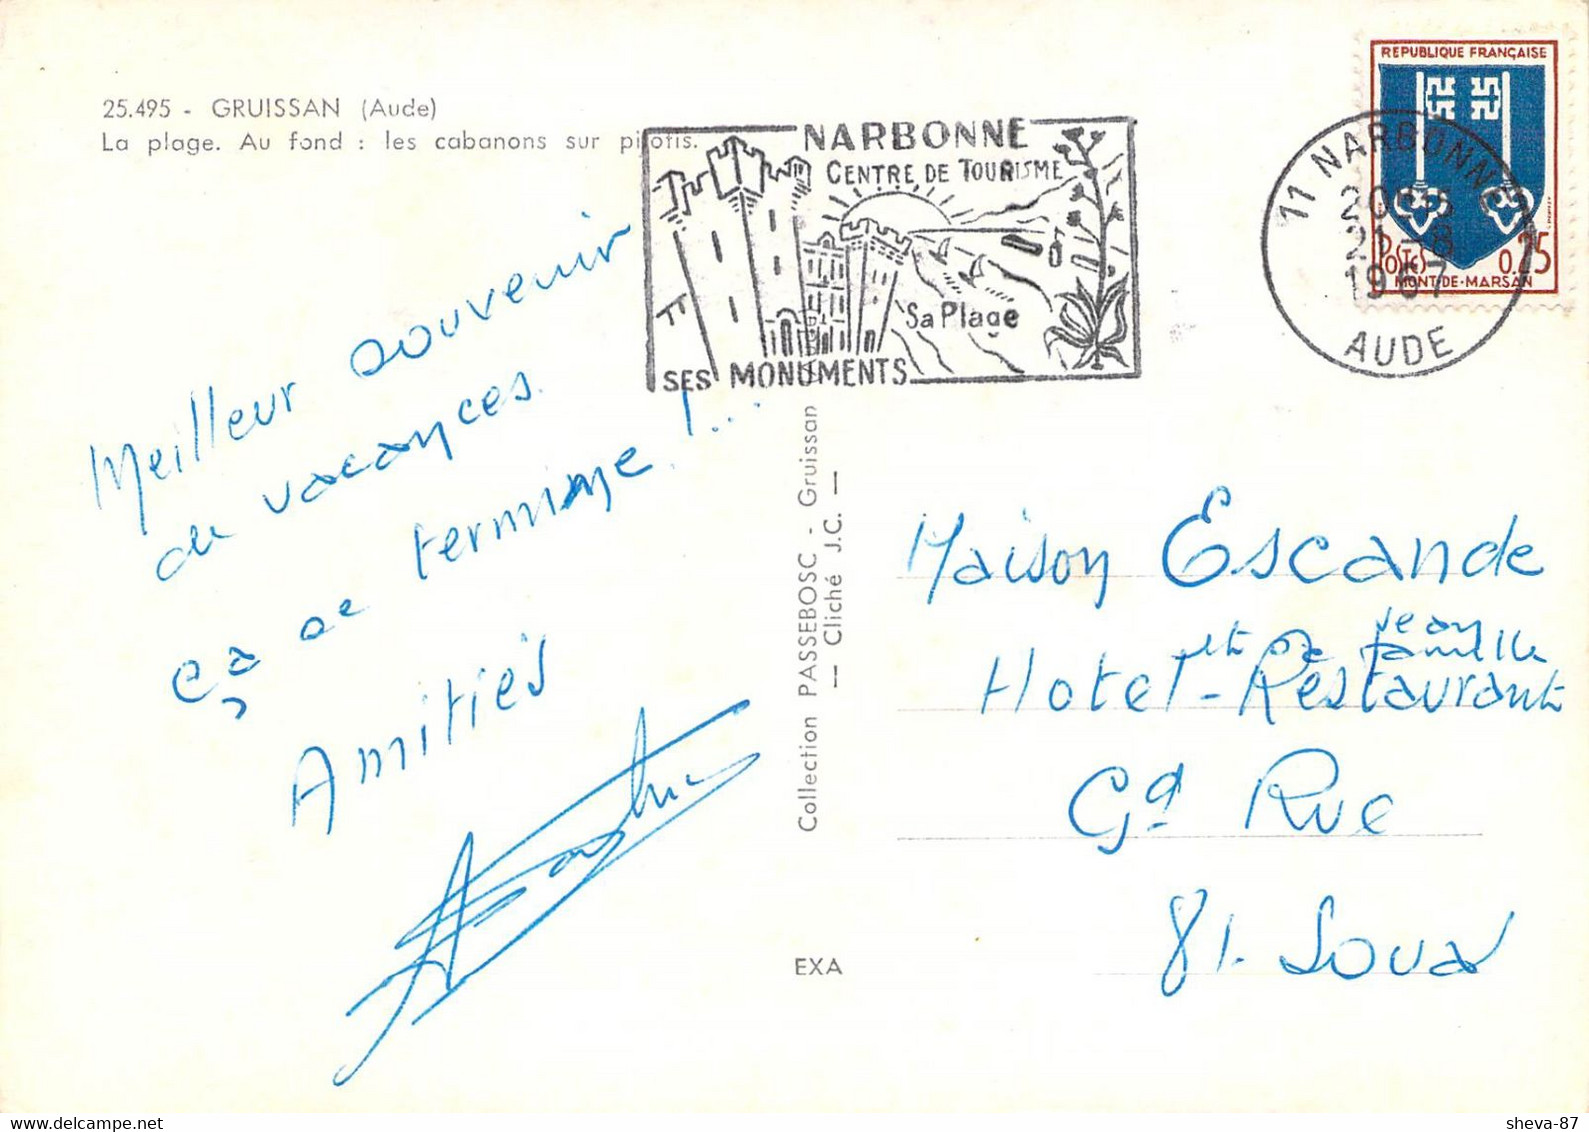 25.495 - GRUISSAN (Aude)
La plage. Au fond : les cabanons sur pilotis.
NARBONNE
CENTRE DE TOURISME
Sa Plage
SES MONUMENTS
11 NARBONNE
21 -8
1967
AUDE
REPUBLIQUE FRANÇAISE
POSTES 0.25
MONT-DE-MARSAN
Meilleur souvenir
de vacances.
ça se termine !...
Amitiés
Collection PASSEBOSC - Gruissan
— Cliché J.C. —
EXA
Maison Escande
Jean
et sa famille
Hotel-Restaurant
Gd Rue
81. Soual
sheva-87